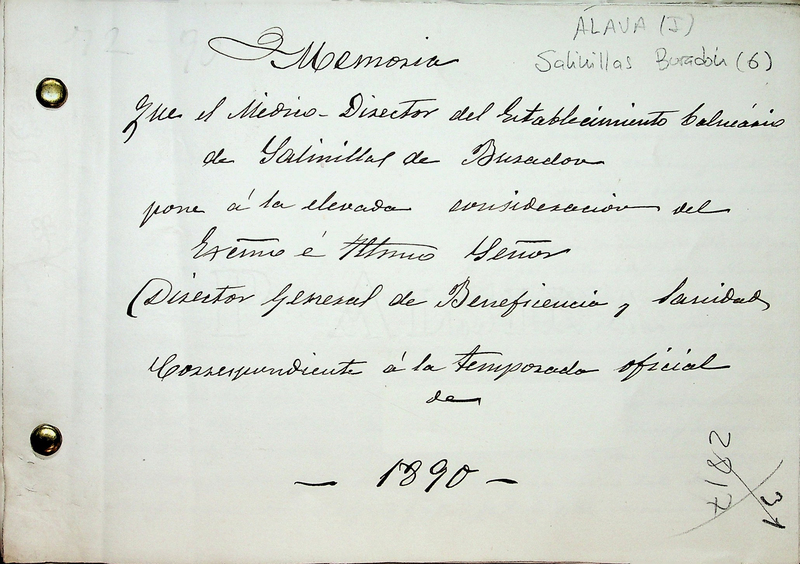 ALAVA (I)
Salinillas Buradón (6)
Memoria
Que el Médico-Director del Establecimiento balneário
de Salinillas de Buradon
pone á la elevada consideracion del
Excmo é Iltmo Señor
Director General de Beneficencia y Sanidad
Correspondiente á la temporada oficial
de
- 1890 -
2817
31